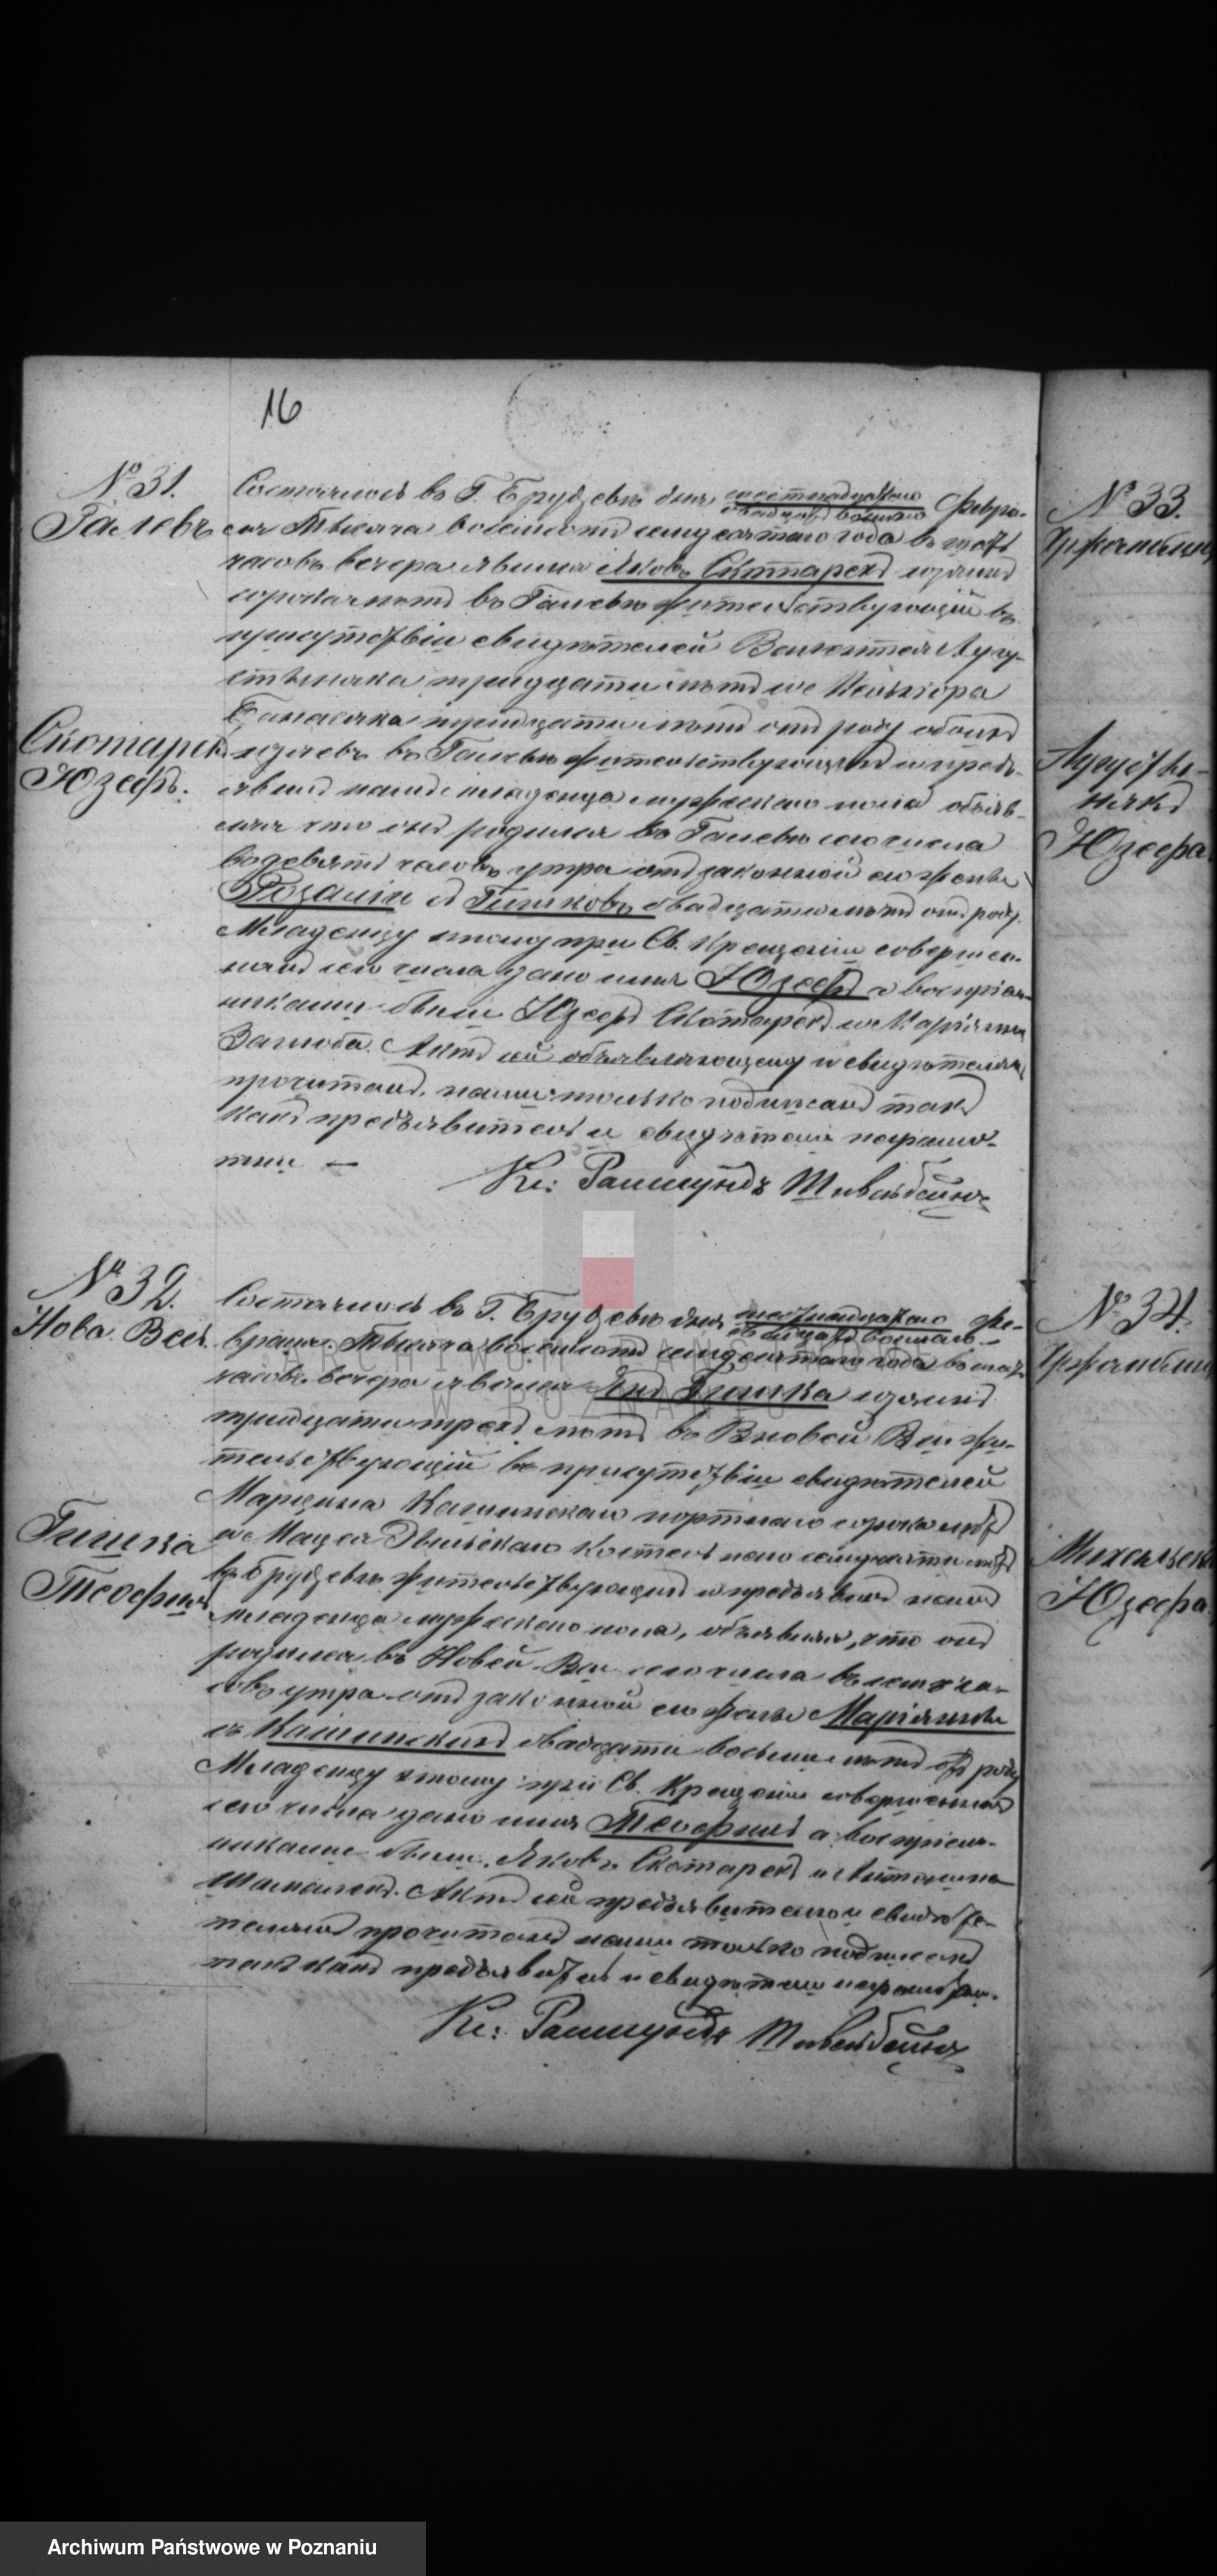 16
№ 31.
Галевъ
Скотарекъ
Юзефъ.
Состоялось въ Г. Брудзевѣ дня шестнадцатаго Февра-
двадцать восьмаго
ля тысяча восемьсотъ семидесятаго года въ шесть
часовъ вечера явился Яковъ Скотарекъ
сорока лѣтъ въ Галевѣ жительствующій въ
присутствіи свидѣтелей Валентея Авгу-
стыняка тридцати лѣтъ и Мельхіора
Банасяка тридцати лѣтъ отъ роду обоихъ
въ Галевѣ жительствующихъ и предъ-
явилъ намъ младенца мужескаго пола объяв-
ляя что онъ родился въ Галевѣ сего числа
въ девять часовъ утра отъ законной его жены
Розаліи съ Гишковъ двадцати лѣтъ отъ роду.
Младенцу этому при Св. Крещеніи совершен-
номъ сего числа дано имя Юзефъ а воспріем-
никами были Юзефъ Скотарекъ и Маріянна
Заглоба. Актъ сей объявляющему и свидѣтелямъ
прочитанъ, нами только подписанъ такъ
какъ предъявитель и свидѣтели неграмо-
тны —
Кс: Раймундъ
№ 32.
Нова Весь.
Гишка
Теофилъ
Состоялось въ Г. Брудзевѣ дня шестнадцатаго Фе-
двадцать восьмаго
враля тысяча восемьсотъ семидесятаго года въ шесть
часовъ вечера явился Янъ Гишка
тридцати трехъ лѣтъ въ Новой Вси жи-
тельствующій въ присутствіи свидѣтелей
Марцина Камінскаго портнаго сорока лѣтъ
и Мацея костельнаго семидесяти лѣтъ
въ Брудзевѣ жительствующихъ и предъявилъ намъ
младенца мужескаго пола, объявляя, что онъ
родился въ Новой Вси сего числа въ семь ча-
совъ утра отъ законной его жены Маріянны
съ Камінскихъ двадцати восьми лѣтъ отъ роду
Младенцу этому при Св. Крещеніи совершенномъ
сего числа дано имя Теофилъ а воспріем-
никами были Яковъ Скотарекъ и Антонина
Актъ сей предъявителю и свидѣ-
телямъ прочитанъ нами только подписанъ
такъ какъ предъявитель и свидѣтели неграмотны.
Кс: Раймундъ
№ 33.
Августы-
някъ
Юзефа
№ 34.
Юзефа
ARCHIWUM PAŃSTWOWE
W POZNANIU
Archiwum Państwowe w Poznaniu